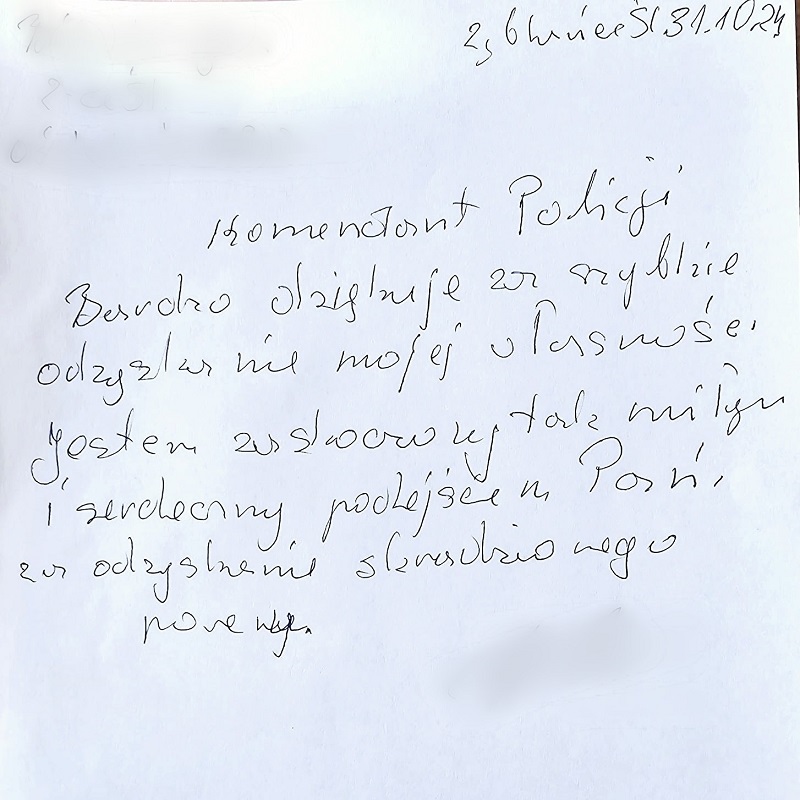 Ząbkowice Śl 31.10.24
Komendant Policji
Bardzo dziękuje za szybkie
odzyskanie mojej własności.
Jestem zaskoczony tak miłym
i serdeczny podejściem Pań.
za odzyskanie skradzionego